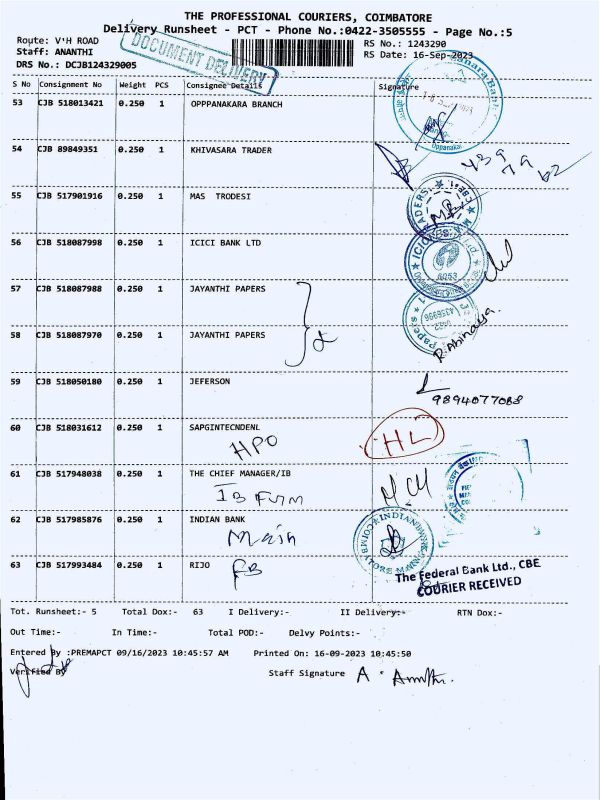 THE PROFESSIONAL COURIERS, COIMBATORE
Delivery Runsheet - PCT - Phone No.:0422-3505555 - Page No.:5
Route: V'H ROAD
Staff: ANANTHI
DRS No.: DCJB124329005
DOCUMENT DELIVERY
RS No.: 1243290
RS Date: 16-Sep-2023
S No Consignment No Weight PCS Consignee Details Signature
53 CJB 518013421 0.250 1 OPPPANAKARA BRANCH
54 CJB 89849351 0.250 1 KHIVASARA TRADER
55 CJB 517901916 0.250 1 MAS TRODESI
56 CJB 518087998 0.250 1 ICICI BANK LTD
57 CJB 518087988 0.250 1 JAYANTHI PAPERS
58 CJB 518087970 0.250 1 JAYANTHI PAPERS
R. Abinaya
59 CJB 518050180 0.250 1 JEFERSON
9894077088
60 CJB 518031612 0.250 1 SAPGINTECNDENL
HPO
HL
61 CJB 517948038 0.250 1 THE CHIEF MANAGER/IB
62 CJB 517985876 0.250 1 INDIAN BANK
Main
INDIAN BANK
COIMBATORE MAIN
63 CJB 517993484 0.250 1 RIJO
FB
The Federal Bank Ltd., CBE
COURIER RECEIVED
Tot. Runsheet:- 5 Total Dox:- 63 I Delivery:- II Delivery:- RTN Dox:-
Out Time:- In Time:- Total POD:- Delvy Points:-
Entered By :PREMAPCT 09/16/2023 10:45:57 AM Printed On: 16-09-2023 10:45:50
Verified By
Staff Signature